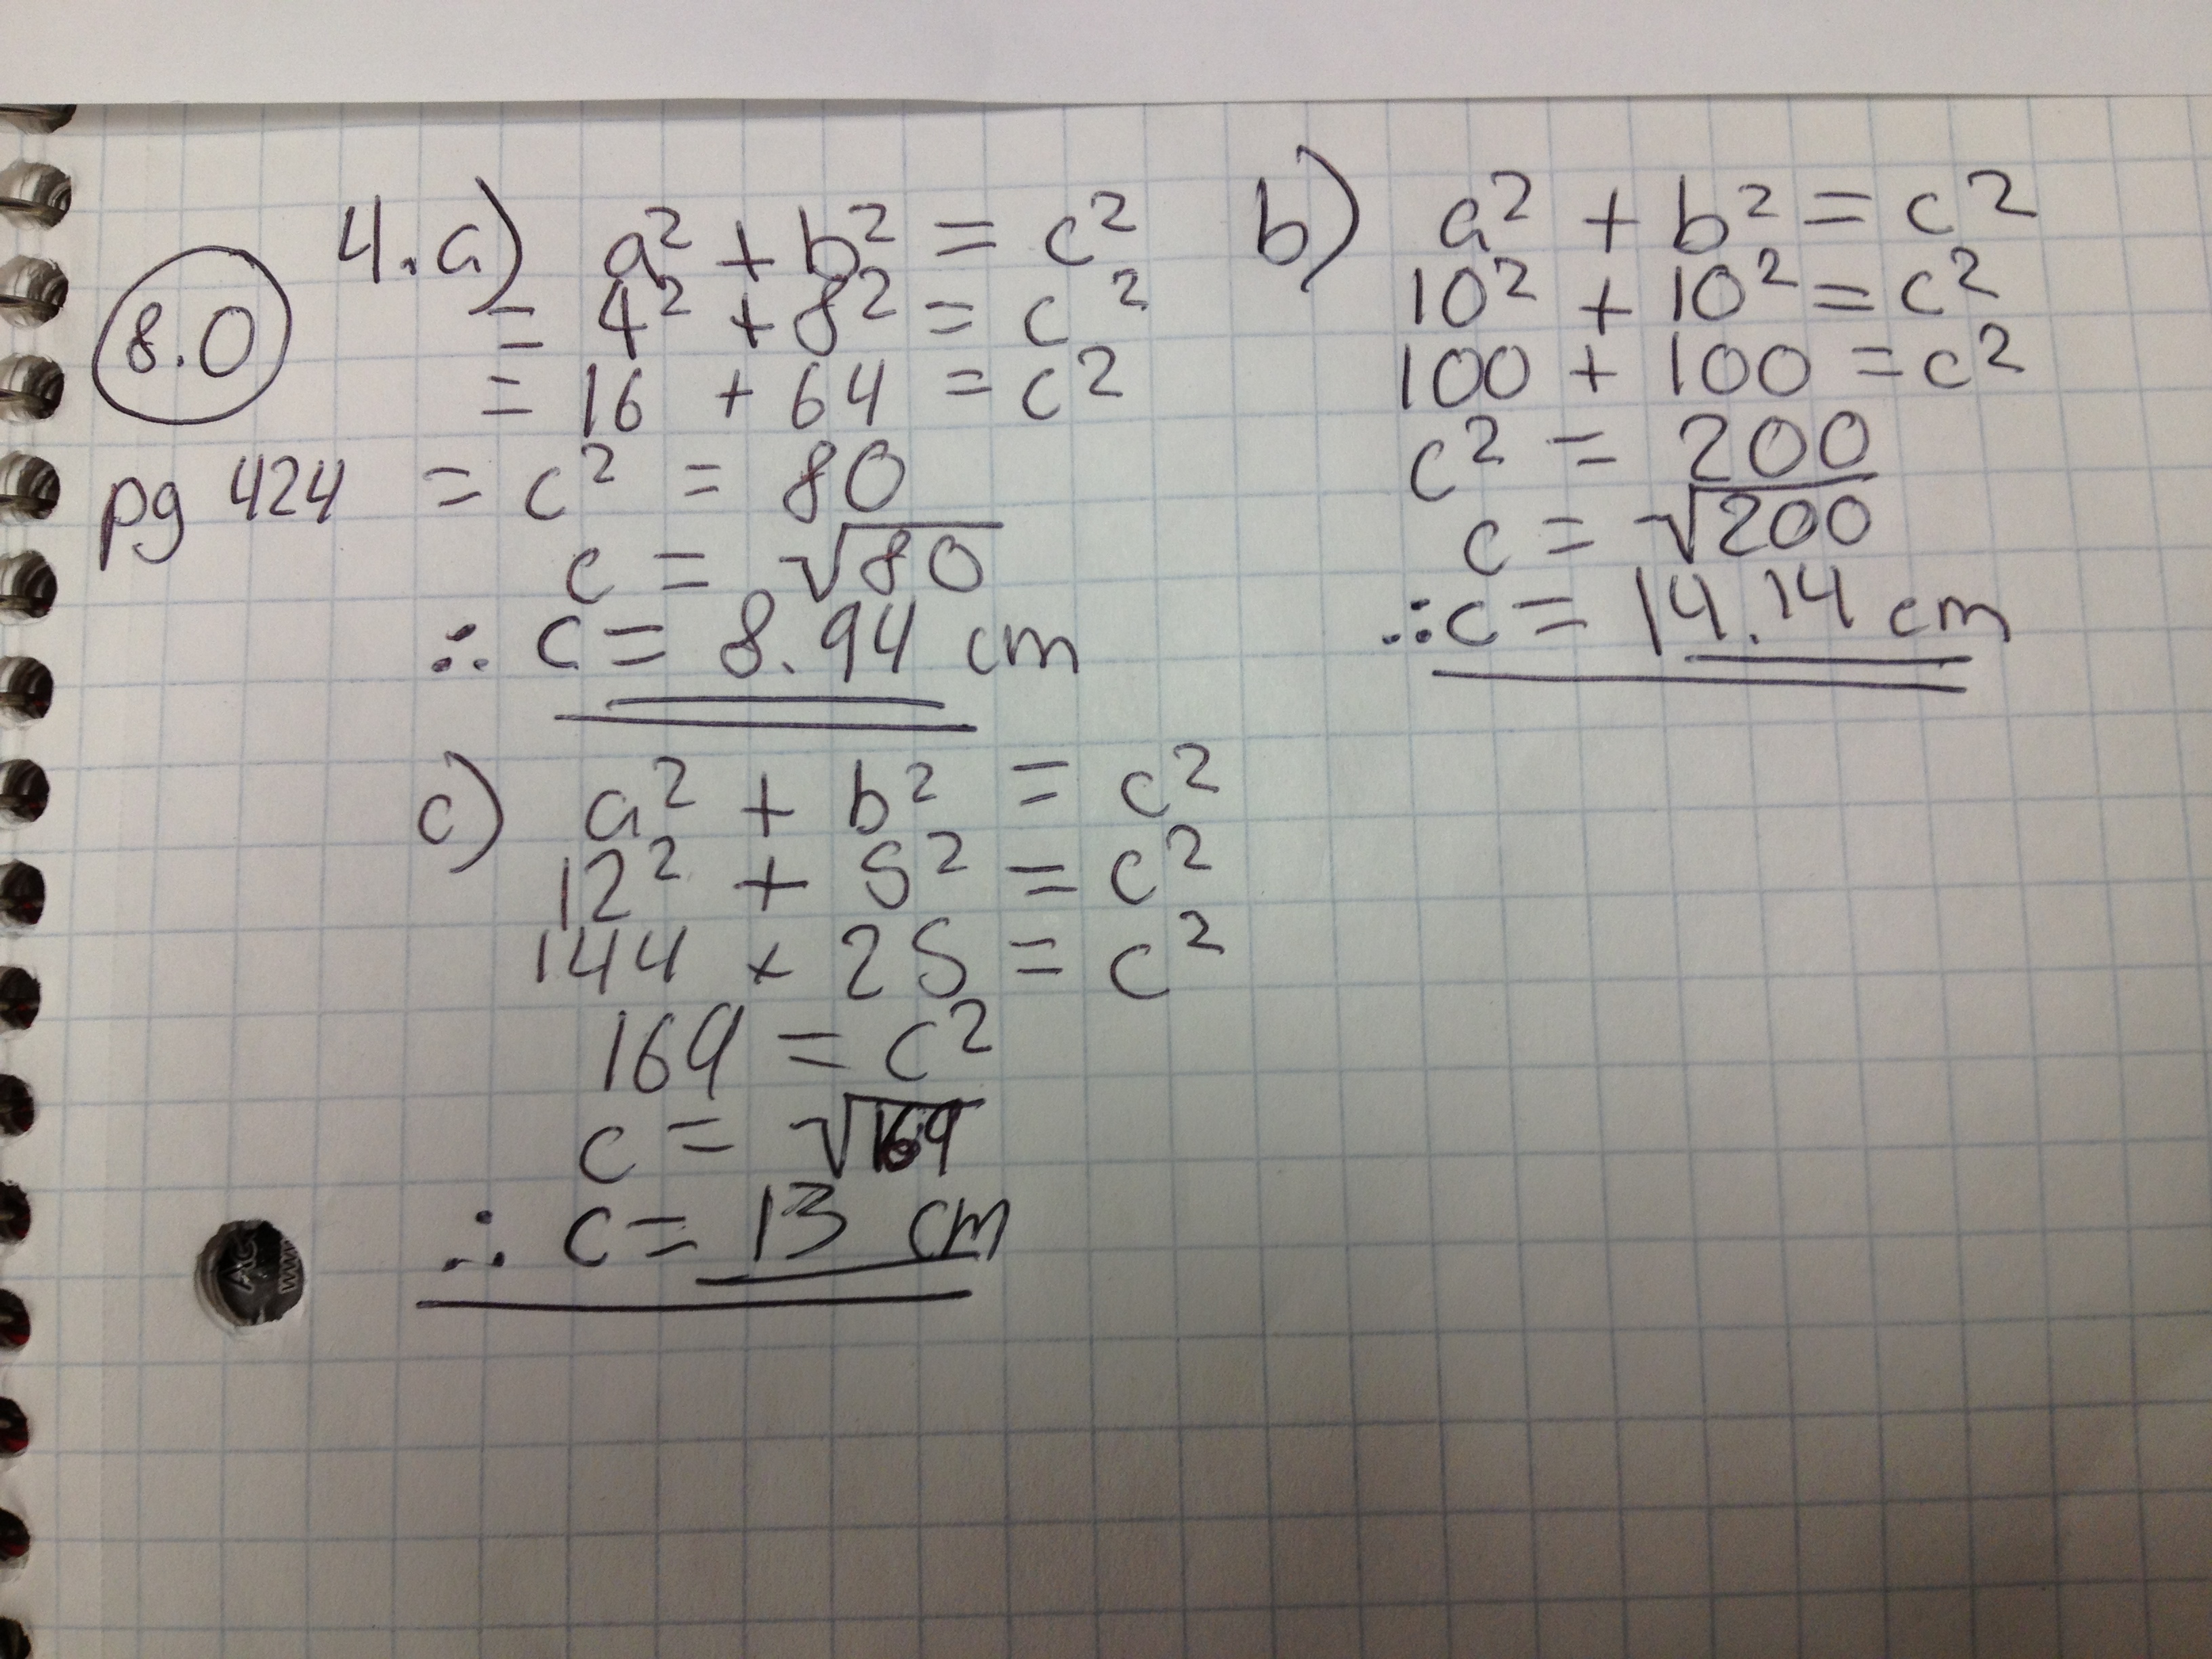 8.0
pg 424
4.a) a² + b² = c²
= 4² + 8² = c²
= 16 + 64 = c²
= c² = 80
c = √80
∴ c = 8.94 cm
b) a² + b² = c²
10² + 10² = c²
100 + 100 = c²
c² = 200
c = √200
∴ c = 14.14 cm
c) a² + b² = c²
12² + 5² = c²
144 + 25 = c²
169 = c²
c = √169
∴ c = 13 cm